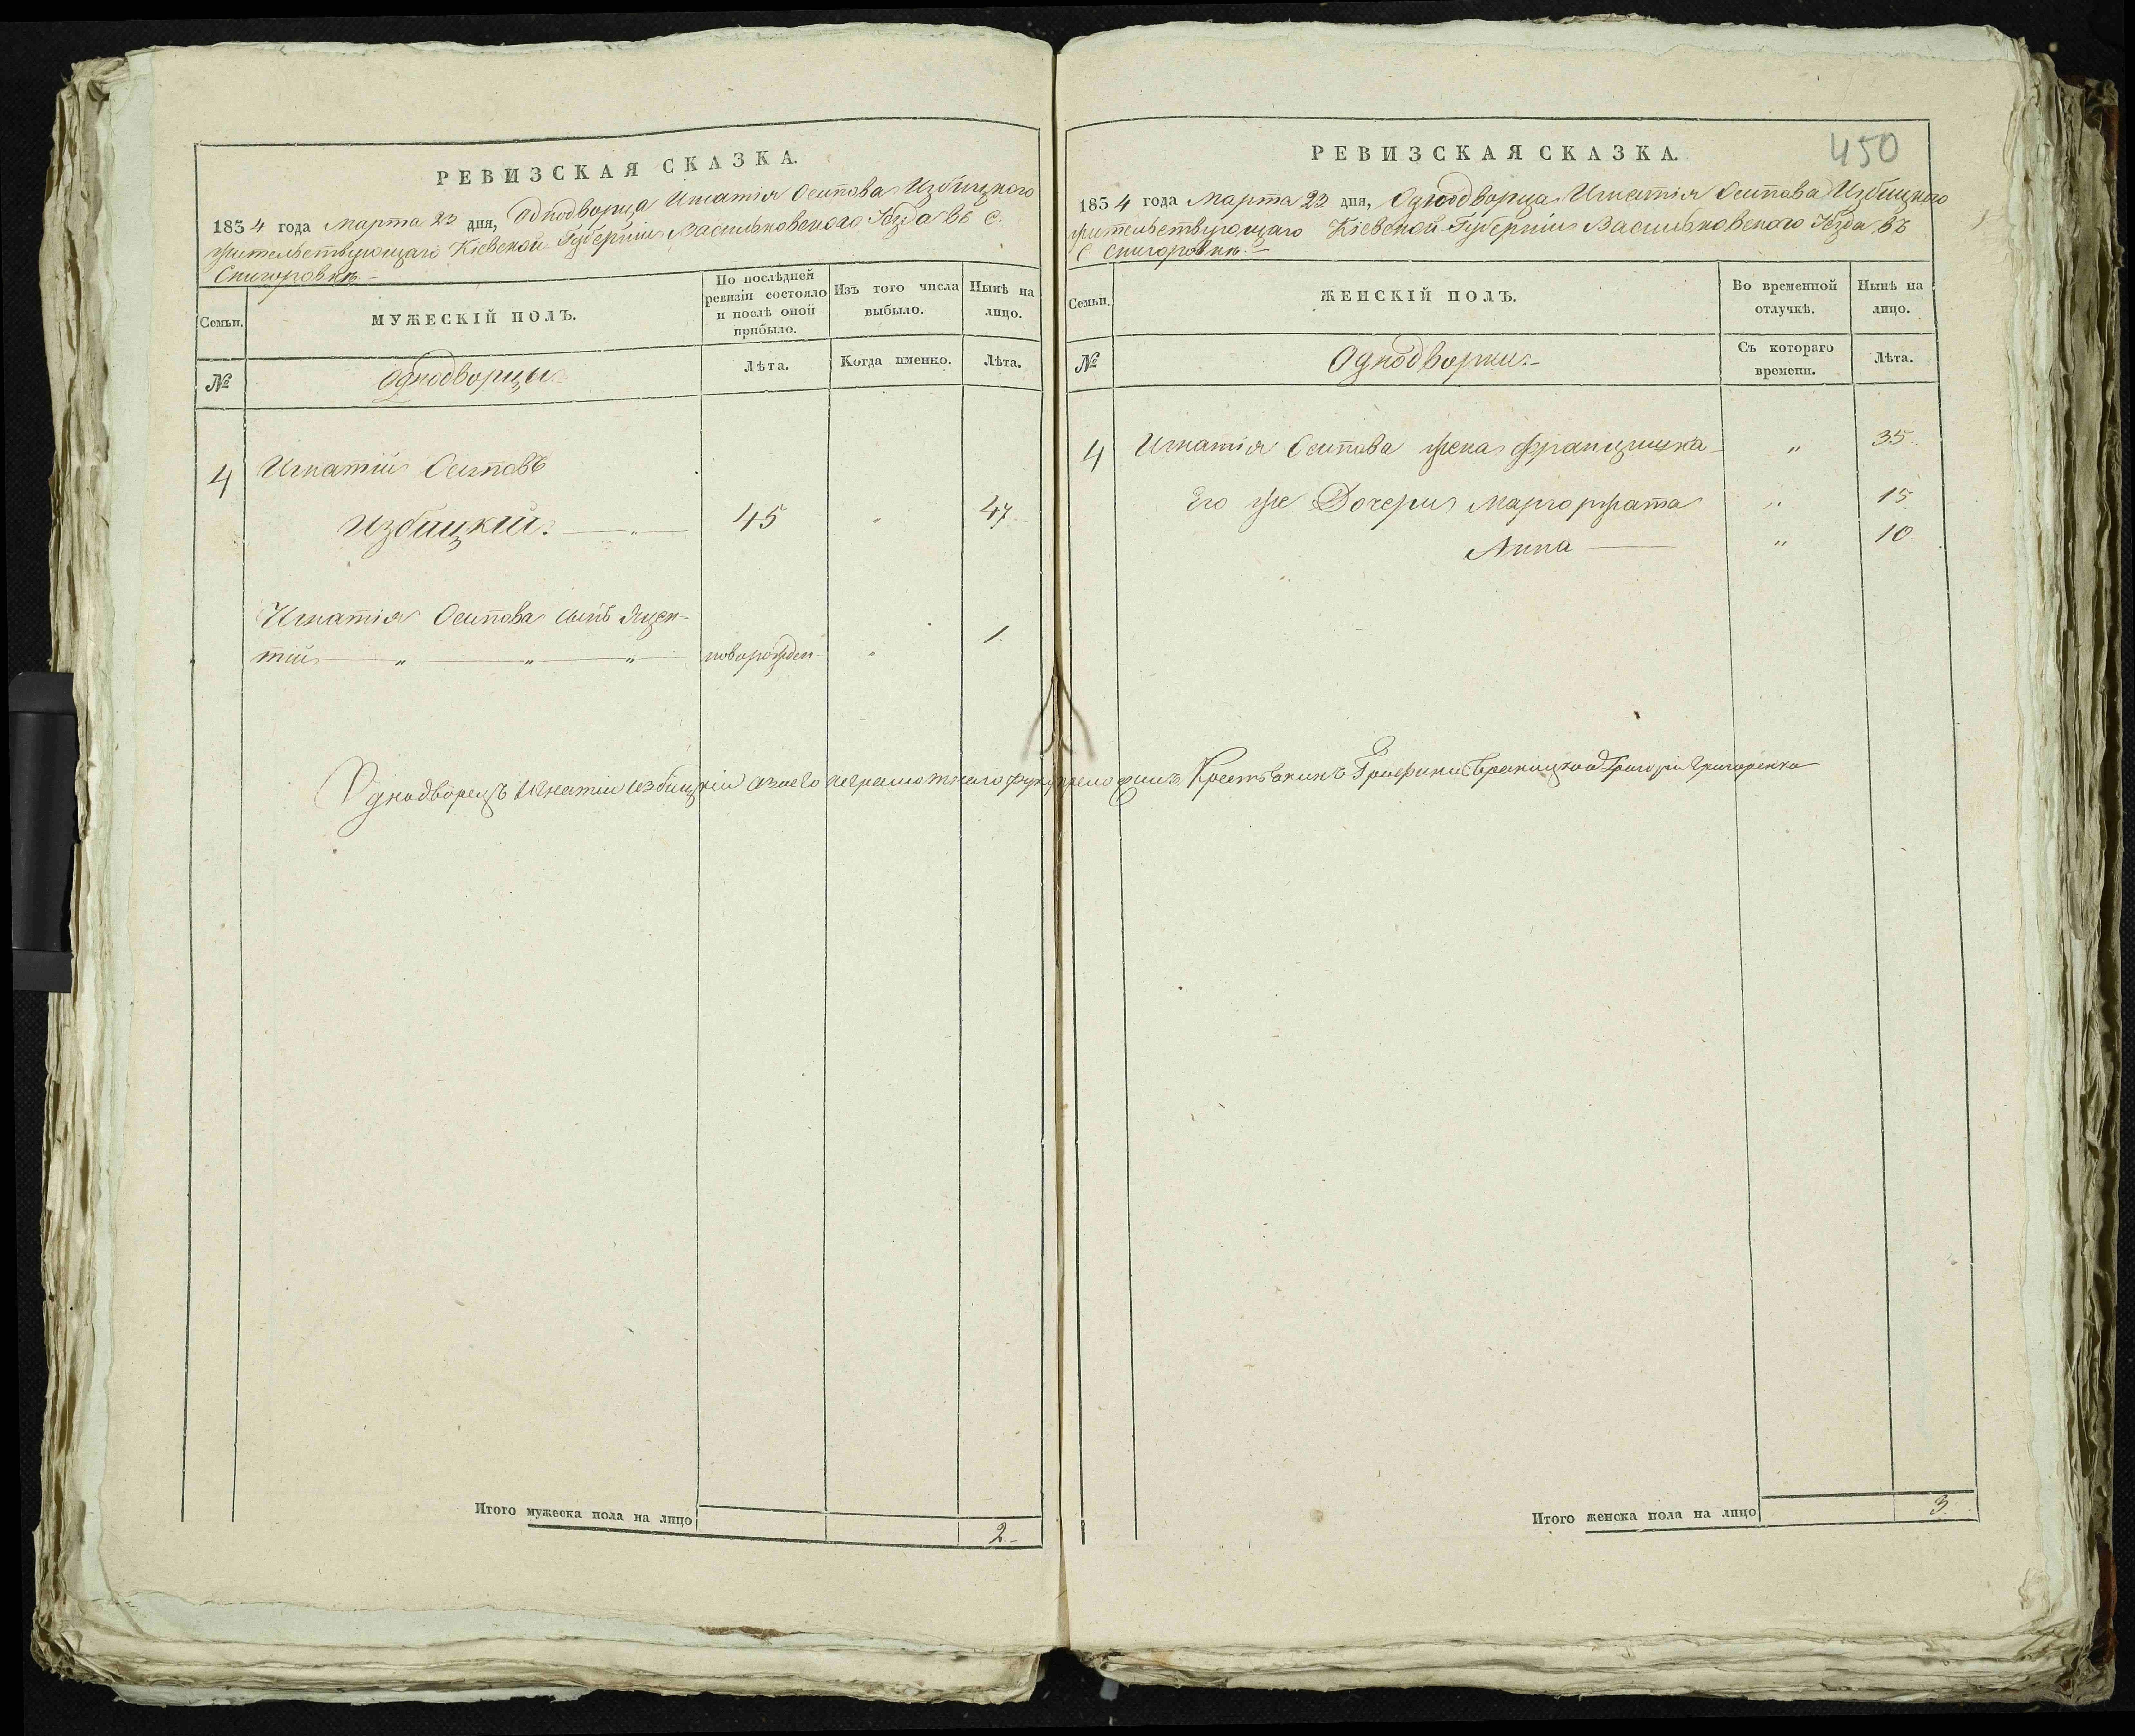 РЕВИЗСКАЯ СКАЗКА.
1834 года Марта 23 дня, Однодворца Игнатія Осипова Избицкого
жительствующаго Кіевской Губерніи Васильковского Уезда въ С.
Снигоровкѣ.
Семьи.
МУЖЕСКІЙ ПОЛЪ.
По послѣдней
ревизіи состояло
и послѣ оной
прибыло.
Изъ того числа
выбыло.
Нынѣ на
лицо.
№
Однодворцы
Лѣта.
Когда именно.
Лѣта.
4 Игнатій Осиповъ
Избицкій. 45 „ 47
Игнатія Осипова сынъ Яцен-
тій „ „ „ новорожден „ 1
Однодворецъ Игнатіи Избицкіи азаего неграмотнаго Крестьянинъ Григоріи Григоренко
Итого мужеска пола на лицо
2
450
РЕВИЗСКАЯ СКАЗКА.
1834 года Марта 23 дня, Однодворца Игнатія Осипова Избицкого
жительствующаго Кіевской Губерніи Васильковского Уезда въ
С Снигоровкѣ.
Семьи.
ЖЕНСКІЙ ПОЛЪ.
Во временной
отлучкѣ.
Нынѣ на
лицо.
№
Однодворки.
Съ котораго
времени.
Лѣта.
4 Игнатія Осипова жена Францишка „ 35
Его же Дочери Маргоржата „ 15
Анна „ 10
Итого женска пола на лицо
3